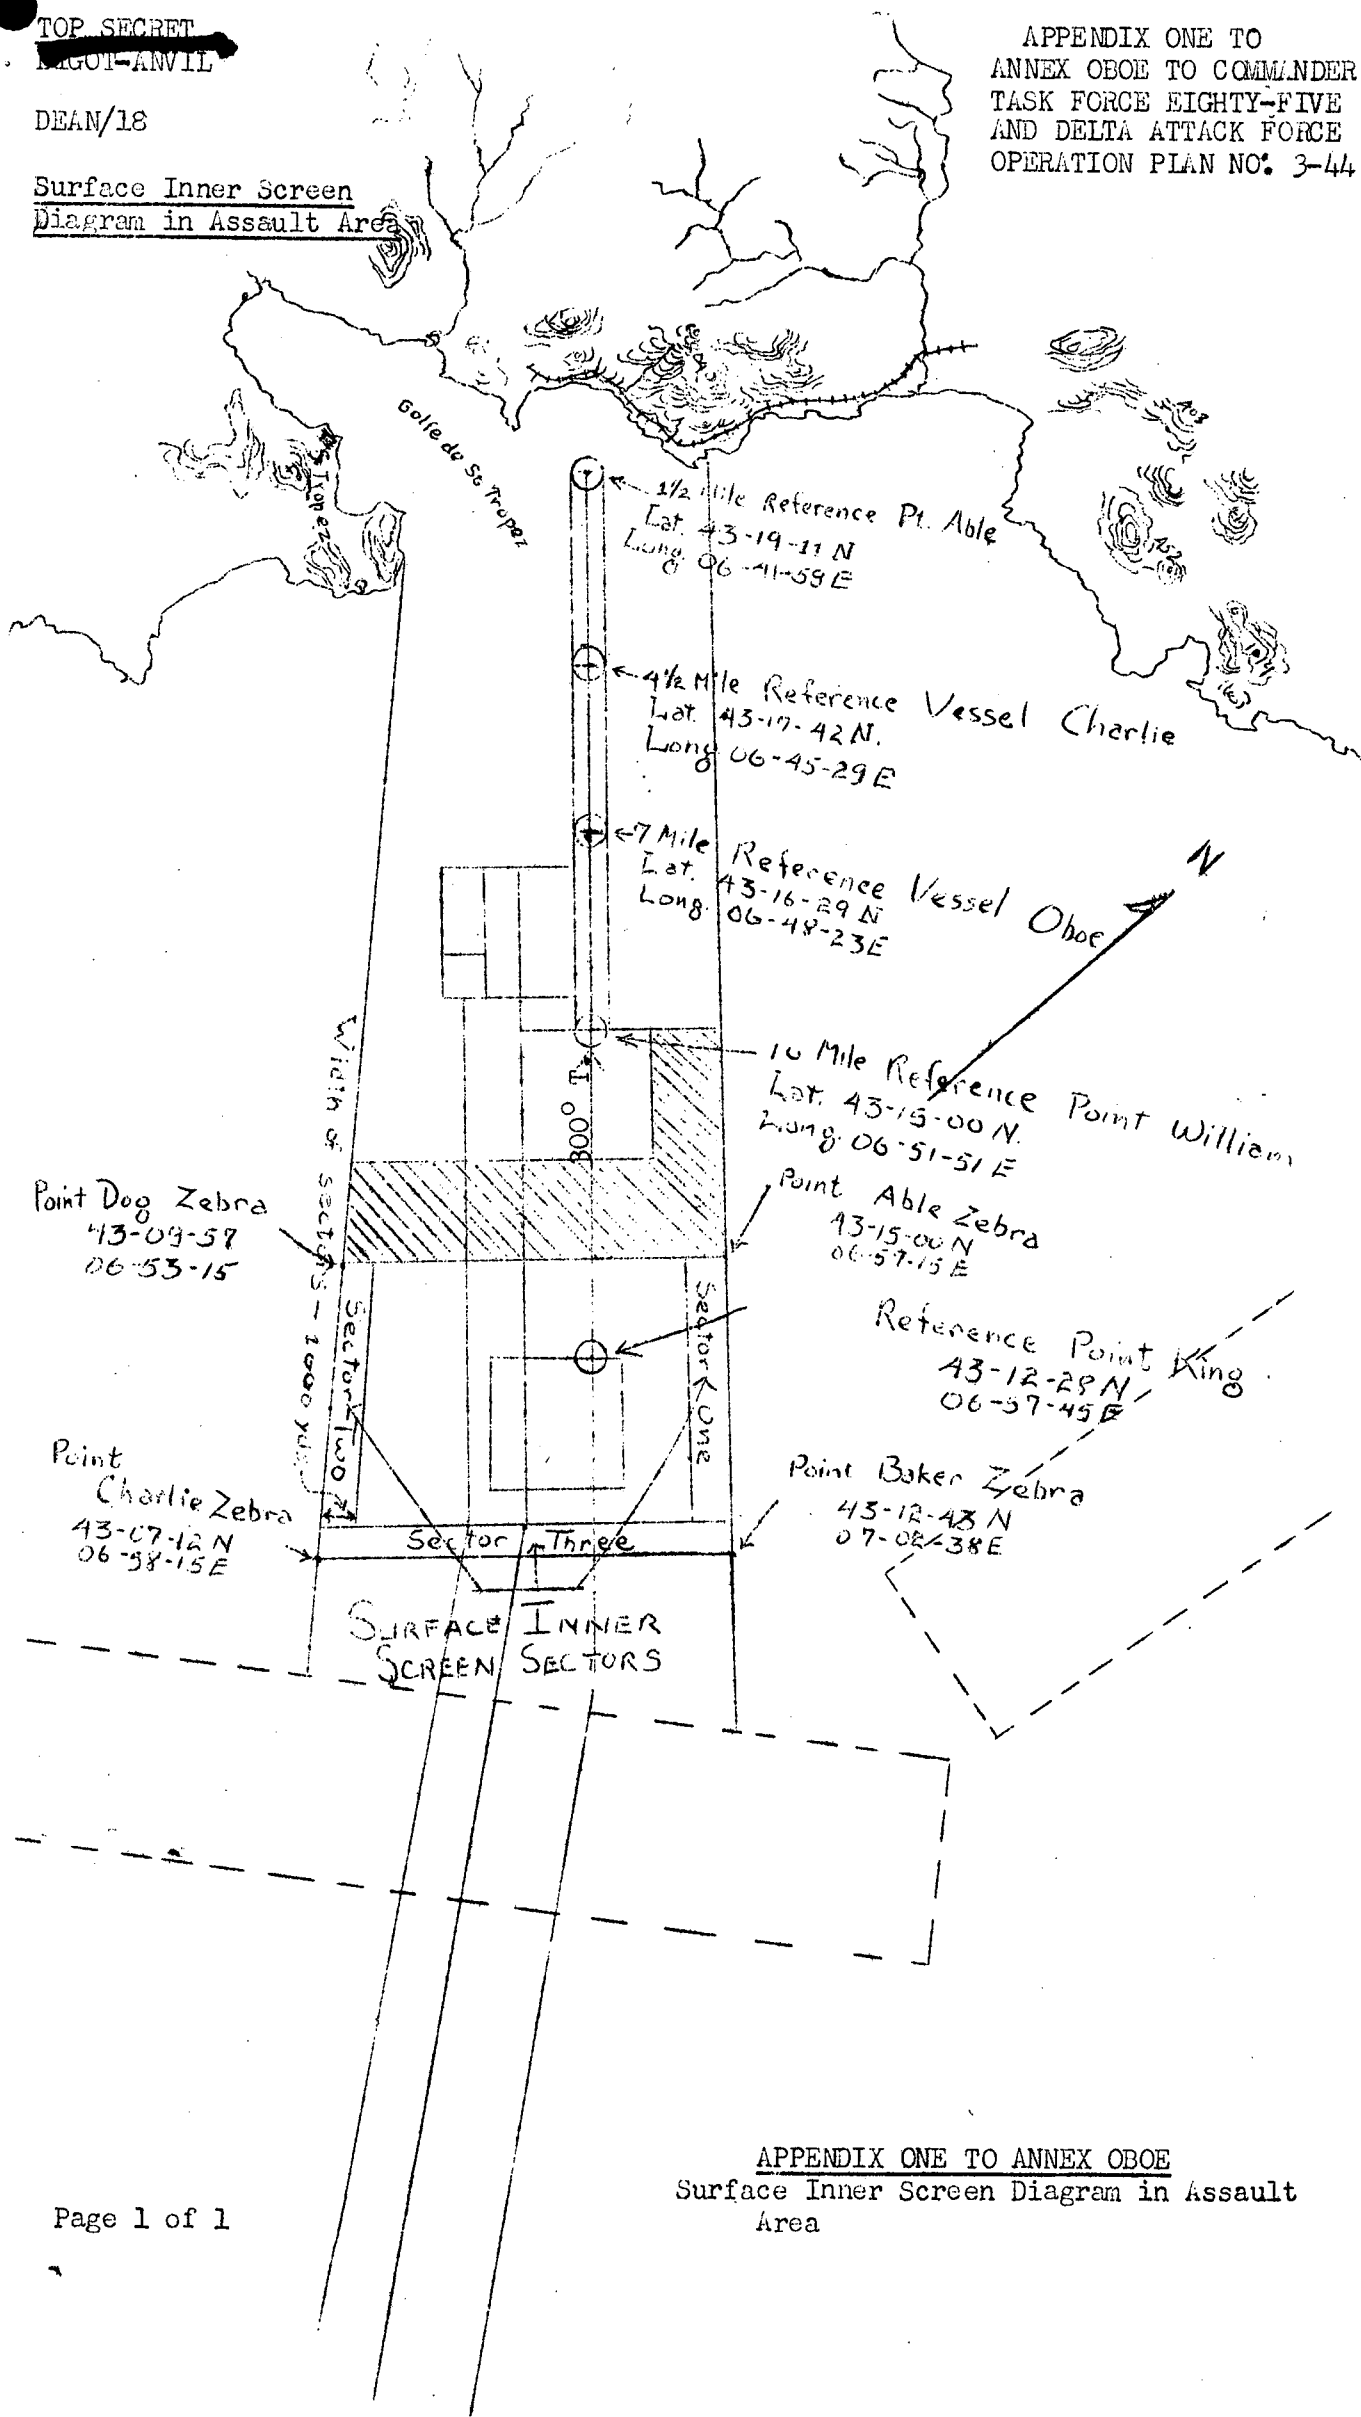 TOP SECRET
BIGOT-ANVIL
DEAN/18
Surface Inner Screen
Diagram in Assault Area
APPENDIX ONE TO
ANNEX OBOE TO COMMANDER
TASK FORCE EIGHTY-FIVE
AND DELTA ATTACK FORCE
OPERATION PLAN NO. 3-44
Golfe de St Tropez
1 1/2 Mile Reference Pt. Able
Lat. 43-19-11 N
Long. 06-41-59 E
4 1/2 Mile Reference Vessel Charlie
Lat. 43-17-42 N.
Long 06-45-29 E
7 Mile Reference Vessel Oboe
Lat. 43-16-29 N
Long. 06-48-23 E
N
10 Mile Reference Point William
Lat. 43-15-00 N.
Long. 06-51-51 E
300° T.
Width of sectors - 1000 yds.
Point Dog Zebra
43-09-57
06-53-15
Point Able Zebra
43-15-00 N
06-57-15 E
Sector Two
Sector One
Reference Point King
43-12-29 N
06-57-45 E
Point
Charlie Zebra
43-07-12 N
06-58-15 E
Point Baker Zebra
43-12-43 N
07-02-38 E
Sector Three
SURFACE INNER
SCREEN SECTORS
APPENDIX ONE TO ANNEX OBOE
Surface Inner Screen Diagram in Assault
Area
Page 1 of 1